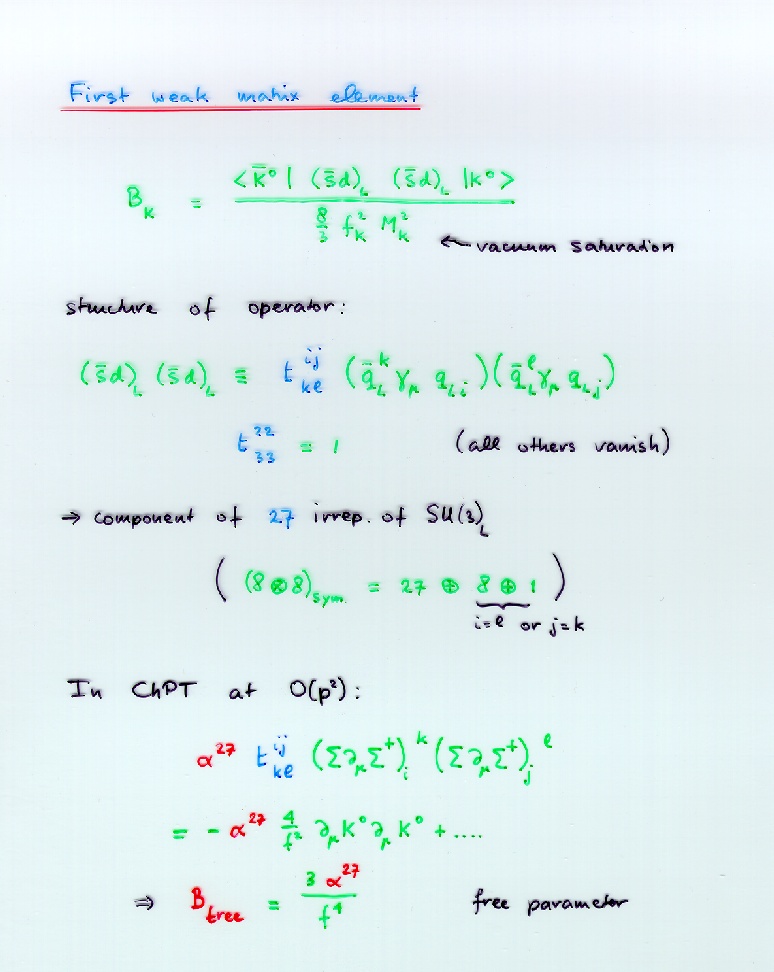 First weak matrix element
B_K = <K̄⁰| (s̄d)_L (s̄d)_L |K⁰> / (8/3 f_K² M_K²) ← vacuum saturation
structure of operator:
(s̄d)_L (s̄d)_L ≡ t^{ij}_{kℓ} (q̄_L^k γ_μ q_{L,i})(q̄_L^ℓ γ_μ q_{L,j})
t^{22}_{33} = 1 (all others vanish)
→ component of 27 irrep. of SU(3)_L
( (8⊗8)_sym. = 27 ⊕ 8 ⊕ 1 )
i=ℓ or j=k
In ChPT at O(p²):
α²⁷ t^{ij}_{kℓ} (Σ∂_μΣ⁺)_i^k (Σ∂_μΣ⁺)_j^ℓ
= - α²⁷ 4/f² ∂_μK⁰ ∂_μK⁰ + ....
⇒ B_tree = 3α²⁷ / f⁴ free parameter